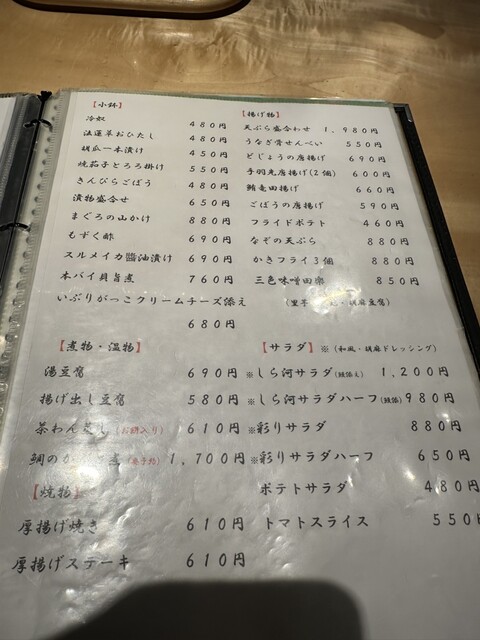 【小鉢】
冷奴 480円
法蓮草おひたし 480円
胡瓜一本漬け 450円
焼茄子とろろ掛け 550円
きんぴらごぼう 480円
漬物盛合せ 650円
まぐろの山かけ 880円
もずく酢 690円
スルメイカ醤油漬け 690円
本バイ貝旨煮 760円
いぶりがっこクリームチーズ添え
680円
【揚げ物】
天ぷら盛合わせ 1,980円
うなぎ骨せんべい 550円
どじょうの唐揚げ 690円
手羽先唐揚げ(2個) 600円
鮪竜田揚げ 660円
ごぼうの唐揚げ 590円
フライドポテト 460円
なぞの天ぷら 880円
かきフライ3個 880円
三色味噌田楽 850円
(里芋 ・胡麻豆腐)
【煮物・温物】
湯豆腐 690円
揚げ出し豆腐 580円
茶わん蒸し(お餅入り) 610円
鯛のか 煮 1,700円
【焼物】
厚揚げ焼き 610円
厚揚げステーキ 610円
【サラダ】※(和風・胡麻ドレッシング)
※しら河サラダ(鰻添え) 1,200円
※しら河サラダハーフ(鰻添) 980円
※彩りサラダ 880円
※彩りサラダハーフ 650円
ポテトサラダ 480円
トマトスライス 550円